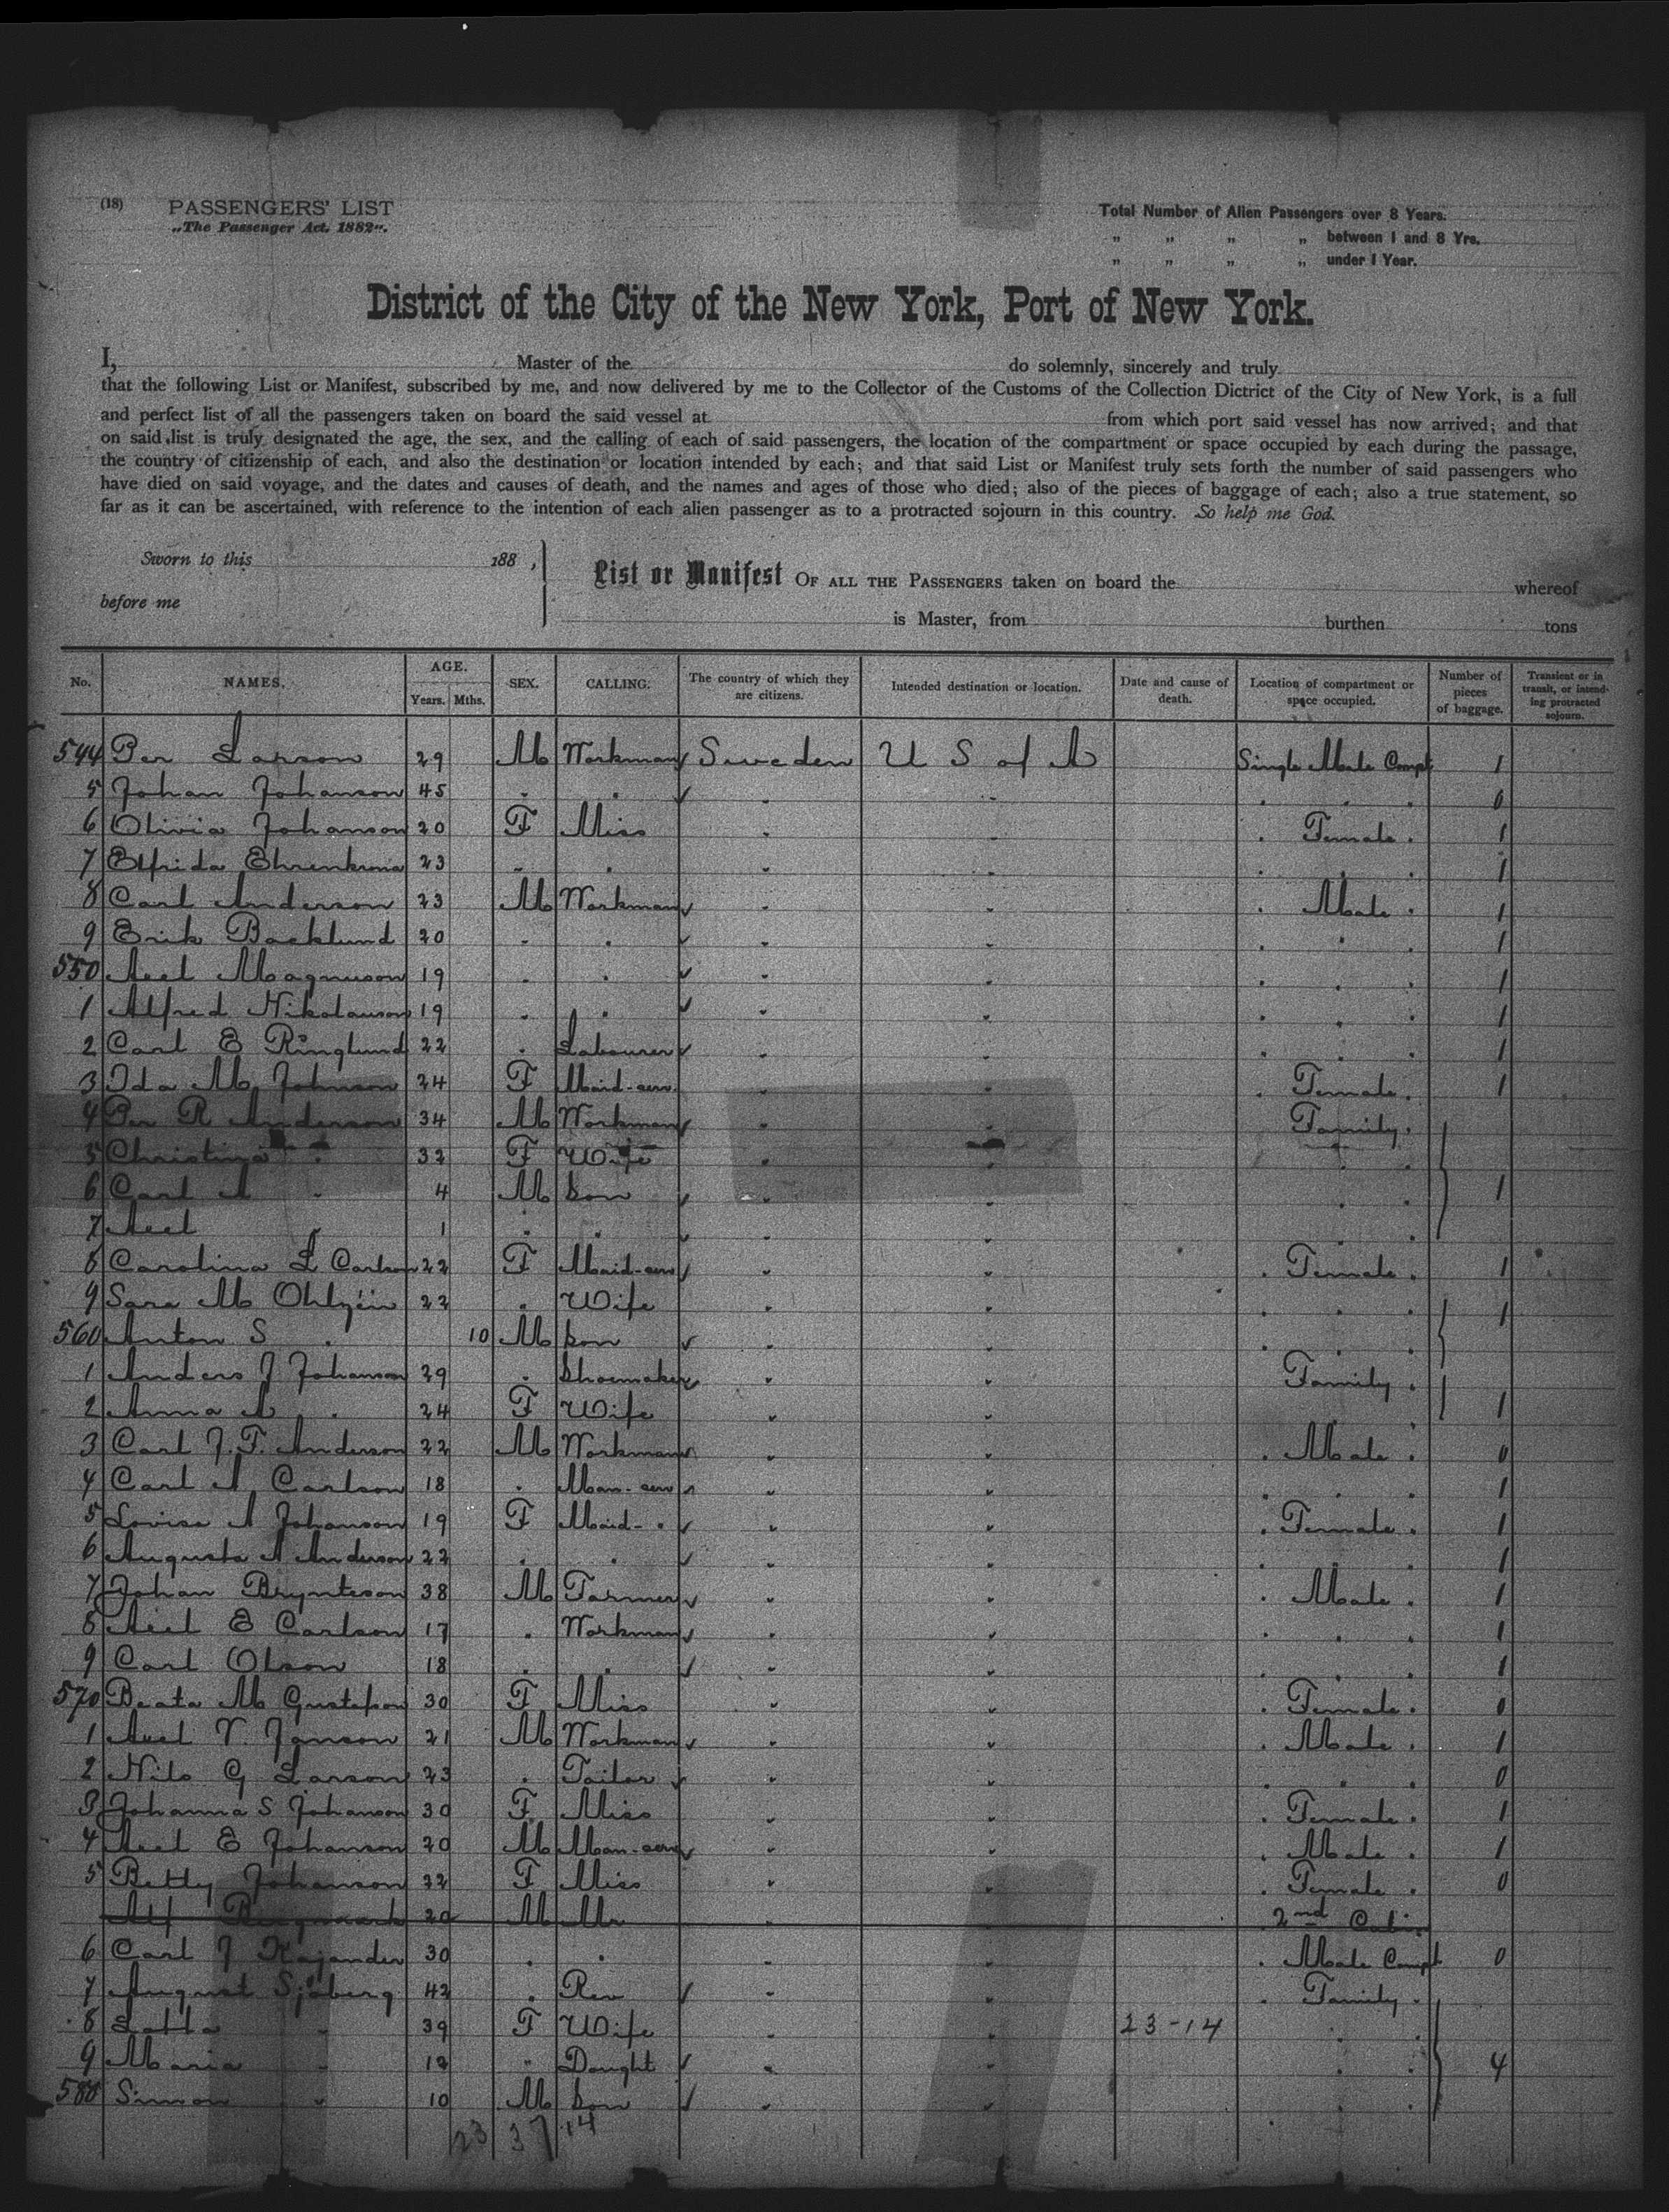 (18) PASSENGERS' LIST
„The Passenger Act, 1882".
Total Number of Alien Passengers over 8 Years.
„ „ „ „ between 1 and 8 Yrs.
„ „ „ „ under 1 Year.
District of the City of the New York, Port of New York.
I, Master of the do solemnly, sincerely and truly
that the following List or Manifest, subscribed by me, and now delivered by me to the Collector of the Customs of the Collection Dictrict of the City of New York, is a full
and perfect list of all the passengers taken on board the said vessel at from which port said vessel has now arrived; and that
on said list is truly designated the age, the sex, and the calling of each of said passengers, the location of the compartment or space occupied by each during the passage,
the country of citizenship of each, and also the destination or location intended by each; and that said List or Manifest truly sets forth the number of said passengers who
have died on said voyage, and the dates and causes of death, and the names and ages of those who died; also of the pieces of baggage of each; also a true statement, so
far as it can be ascertained, with reference to the intention of each alien passenger as to a protracted sojourn in this country. So help me God.
Sworn to this 188 ,
before me
List or Manifest OF ALL THE PASSENGERS taken on board the whereof
is Master, from burthen tons
No. NAMES. AGE. Years. Mths. SEX. CALLING. The country of which they are citizens. Intended destination or location. Date and cause of death. Location of compartment or space occupied. Number of pieces of baggage. Transient or in transit, or intending protracted sojourn.
544 Per Larson 29 M Workman Sweden U S of A Single Male Compt 1
5 Johan Johanson 45 . . . . . . . 0
6 Olivia Johanson 20 F Miss . . . Female . 1
7 Elfrida Ehrenkrona 23 . . . . . . . 1
8 Carl Anderson 23 M Workman . . . Male . 1
9 Erik Backlund 20 . . . . . . . 1
550 Axel Magnuson 19 . . . . . . . 1
1 Alfred Nikolauson 19 . . . . . . . 1
2 Carl E Ringlund 22 . Labourer . . . . . 1
3 Ida M Johnson 24 F Maid-serv. . . . Female . 1
4 Per R Anderson 34 M Workman . . Family .
5 Christina . 32 F Wife . . . .
6 Carl A . 4 M Son . . . . 1
7 Axel „ 1 . . . . .
8 Carolina L Carlson 22 F Maid-serv . . . Female . 1
9 Sara M 22 . Wife . . . . . 1
560 Anton S . 10 M Son . . . . .
1 Anders J Johanson 29 . Shoemaker . . Family .
2 Anna A . 24 F Wife . . 1
3 Carl J. F. Anderson 22 M Workman . . . Male . 0
4 Carl A Carlson 18 . Man-serv . . . . . 1
5 Lovisa A Johanson 19 F Maid- . . . . Female . 1
6 Augusta A Anderson 22 . . . . . . . 1
7 Johan Brynteson 38 M Farmer . . . Male . 1
8 Axel E Carlson 17 . Workman . . . . . 1
9 Carl Olson 18 . . . . . . . 1
570 Beata M Gustafson 30 F Miss . . . Female . 0
1 Axel V. Janson 21 M Workman . . . Male . 1
2 Nils G Larson 23 . Tailor . . . . . 0
3 Johanna S Johanson 30 F Miss . . . Female . 1
4 Axel E Johanson 20 M Man-serv . . . Male . 1
5 Betty Johanson 22 F Miss . . . Female . 0
20 M Mr . 2nd Cabin
6 Carl J Kajander 30 . . . . . Male Compt 0
7 August Sjöberg 42 . Rev . . . Family .
8 Lotta „ 39 F Wife . . 23-14 . .
9 Maria „ 12 „ Daught . . . . 4
580 Simon „ 10 M Son . . .
23 37 14